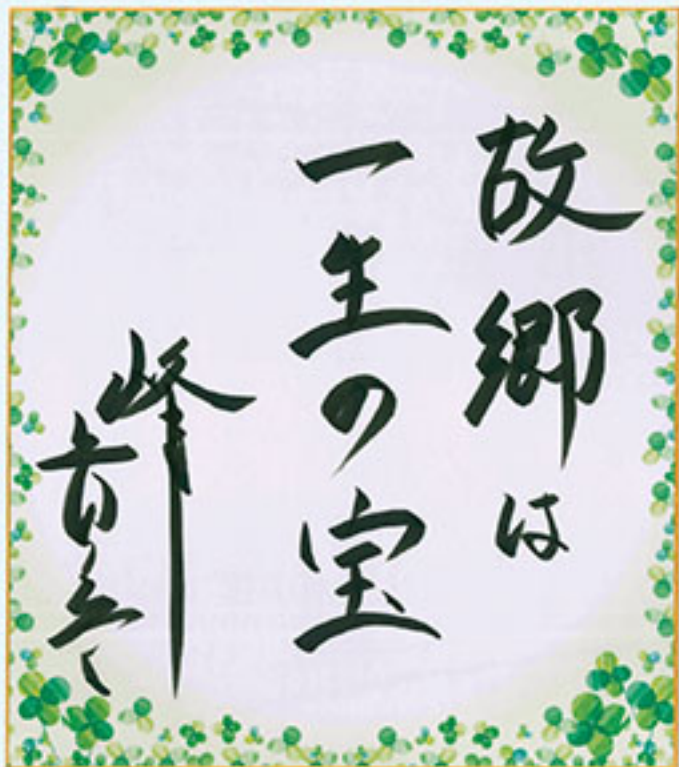 故郷は
一生の宝
峰